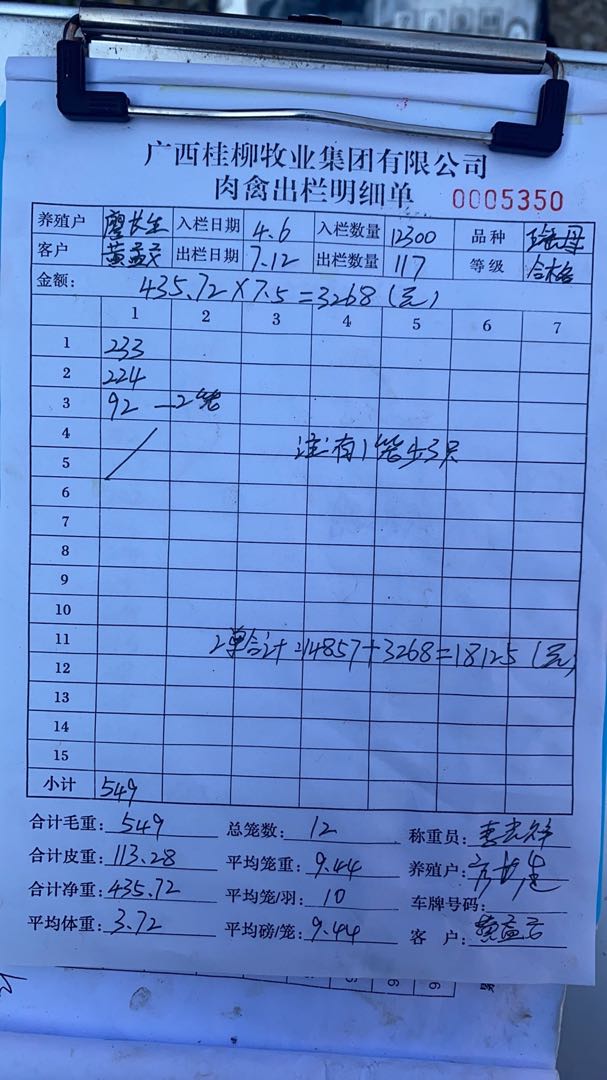 广西桂柳牧业集团有限公司
肉禽出栏明细单 0005350
养殖户 廖长生 入栏日期 4.6 入栏数量 12300 品种 瑶母
客户 黄益云 出栏日期 7.12 出栏数量 117 等级 合格
金额: 435.72×7.5=3268(元)
1 2 3 4 5 6 7
1 233
2 224
3 92 —2笼
4 注:有1笼少3只
5
6
7
8
9
10
11 2单合计:14857+3268=18125(元)
12
13
14
15
小计 549
合计毛重: 549 总笼数: 12 称重员:
合计皮重: 113.28 平均笼重: 9.44 养殖户: 廖长生
合计净重: 435.72 平均笼/羽: 10 车牌号码:
平均体重: 3.72 平均磅/笼: 9.44 客户: 黄益云